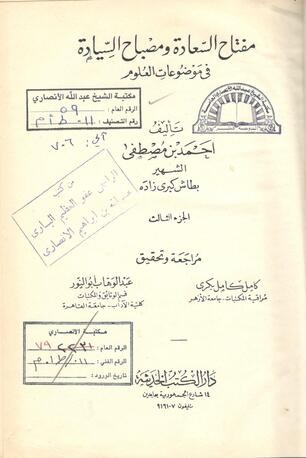 مفتاح السعادة ومصباح السيادة
في موضوعات العلوم
مكتبة الشيخ عبد الله الأنصاري
الرقم العام: ٥٩
رقم التصنيف: ٠١١ ط أ م
٧٠٦
تأليف
أحمد بن مصطفى
الشهير
بطاش كبرى زاده
من كتب
الراجي عفو العظيم الباري
عبد الله بن ابراهيم الأنصاري
الجزء الثالث
مراجعة وتحقيق
كامل كامل بكري
مراقبة المكتبات - جامعة الأزهر
عبد الوهاب أبو النور
قسم الوثائق والمكتبات
كلية الآداب - جامعة القاهرة
مكتبة الانصاري
الرقم العام:
الرقم الفني: ٠١١ / ط ا. م
تاريخ الورود:
دار الكتب الحديثة
١٤ شارع الجمهورية بعابدين
تليفون ٩١٦١٠٧